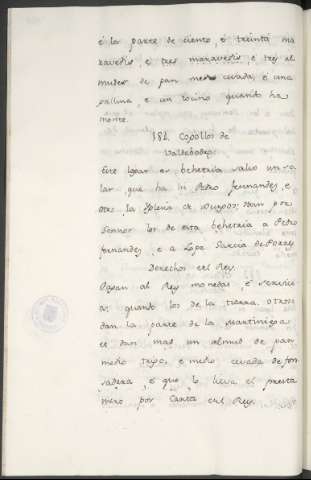 é la parte de ciento, é treinta ma
ravedis, e tres maravedis, e tres al
mudes de pan medio cevada, é una
gallina, e un tocino quando ha
monte.
182. Copollos de
Valdebodre.
Este logar es behetria salvo un so
lar que ha hi Pedro fernandez, e
otro la Iglesia de Burgos; dan por
Sennor los de esta behetria a Pedro
fernandez, e a Lope Garcia de Porras
Derechos del Rey.
Pagan al Rey monedas, é servici
os, quando los de la tierra, otrosi
dan la parte de la Martiniega
es dan mas un almud de pan,
medio trigo, e medio cevada de fon
sadera, é que lo lieva el presta
mero por Carta del Rey.